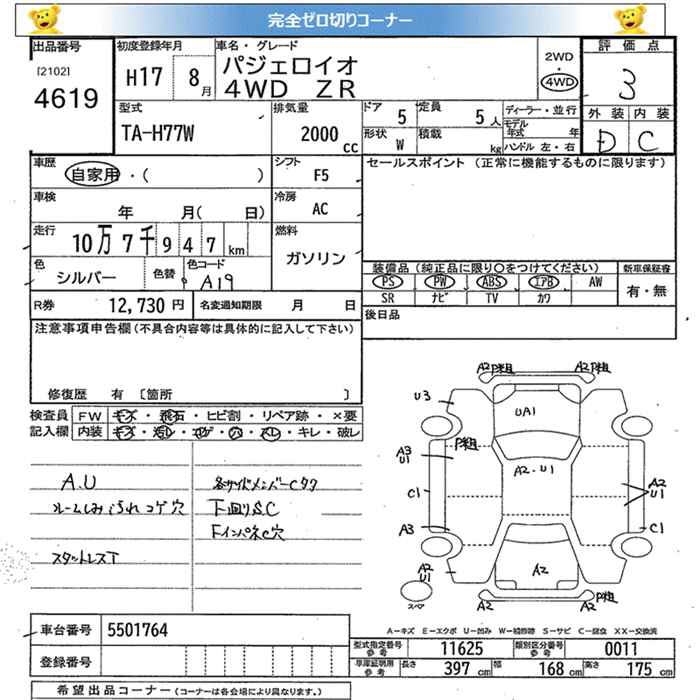 完全ゼロ切りコーナー
出品番号
[2102]
4619
初度登録年月
H17 8月
車名・グレード
パジェロイオ
4WD ZR
2WD
4WD
評価点
3
外装 内装
D C
型式
TA-H77W
排気量
2000 cc
ドア 5
定員 5人
形状 W
積載 kg
ディーラー・並行
モデル年式 年
ハンドル 左・右
車歴
自家用・( )
シフト
F5
セールスポイント (正常に機能するものに限ります)
車検
年 月( 日)
冷房
AC
走行
10万7千947km
燃料
ガソリン
色
シルバー
色替
色コード
A19
装備品(純正品に限り○をつけてください)
新車保証書
PS PW ABS エアB AW
SR ナビ TV カワ
有・無
R券 12,730円
名変通知期限 月 日
後日品
注意事項申告欄(不具合内容等は具体的に記入して下さい)
修復歴 有〔箇所 〕
検査員 FW キズ・飛石・ヒビ割・リペア跡・×要
記入欄 内装 キズ・汚レ・コゲ・穴・スレ・キレ・破レ
A.U
ルームしみ汚れコゲ穴
スタットレスT
各サイドメンバーCタク
下回りS.C
Fインパネ穴
A2P粗 A2P粗
U3
UA1
P粗
A3
U1
A2・U1
A2
U1
C1
C1
A3
A2
U1
A2
スペア
A2 A2 P粗
A-キズ E-エクボ U-凹み W-補修跡 S-サビ C-腐食 XX-交換済
車台番号 5501764
登録番号
型式指定番号
参考
11625
類別区分番号
参考
0011
車庫証明用
参考
長さ 397cm 幅 168cm 高さ 175cm
希望出品コーナー(コーナーは各会場により異なります。)